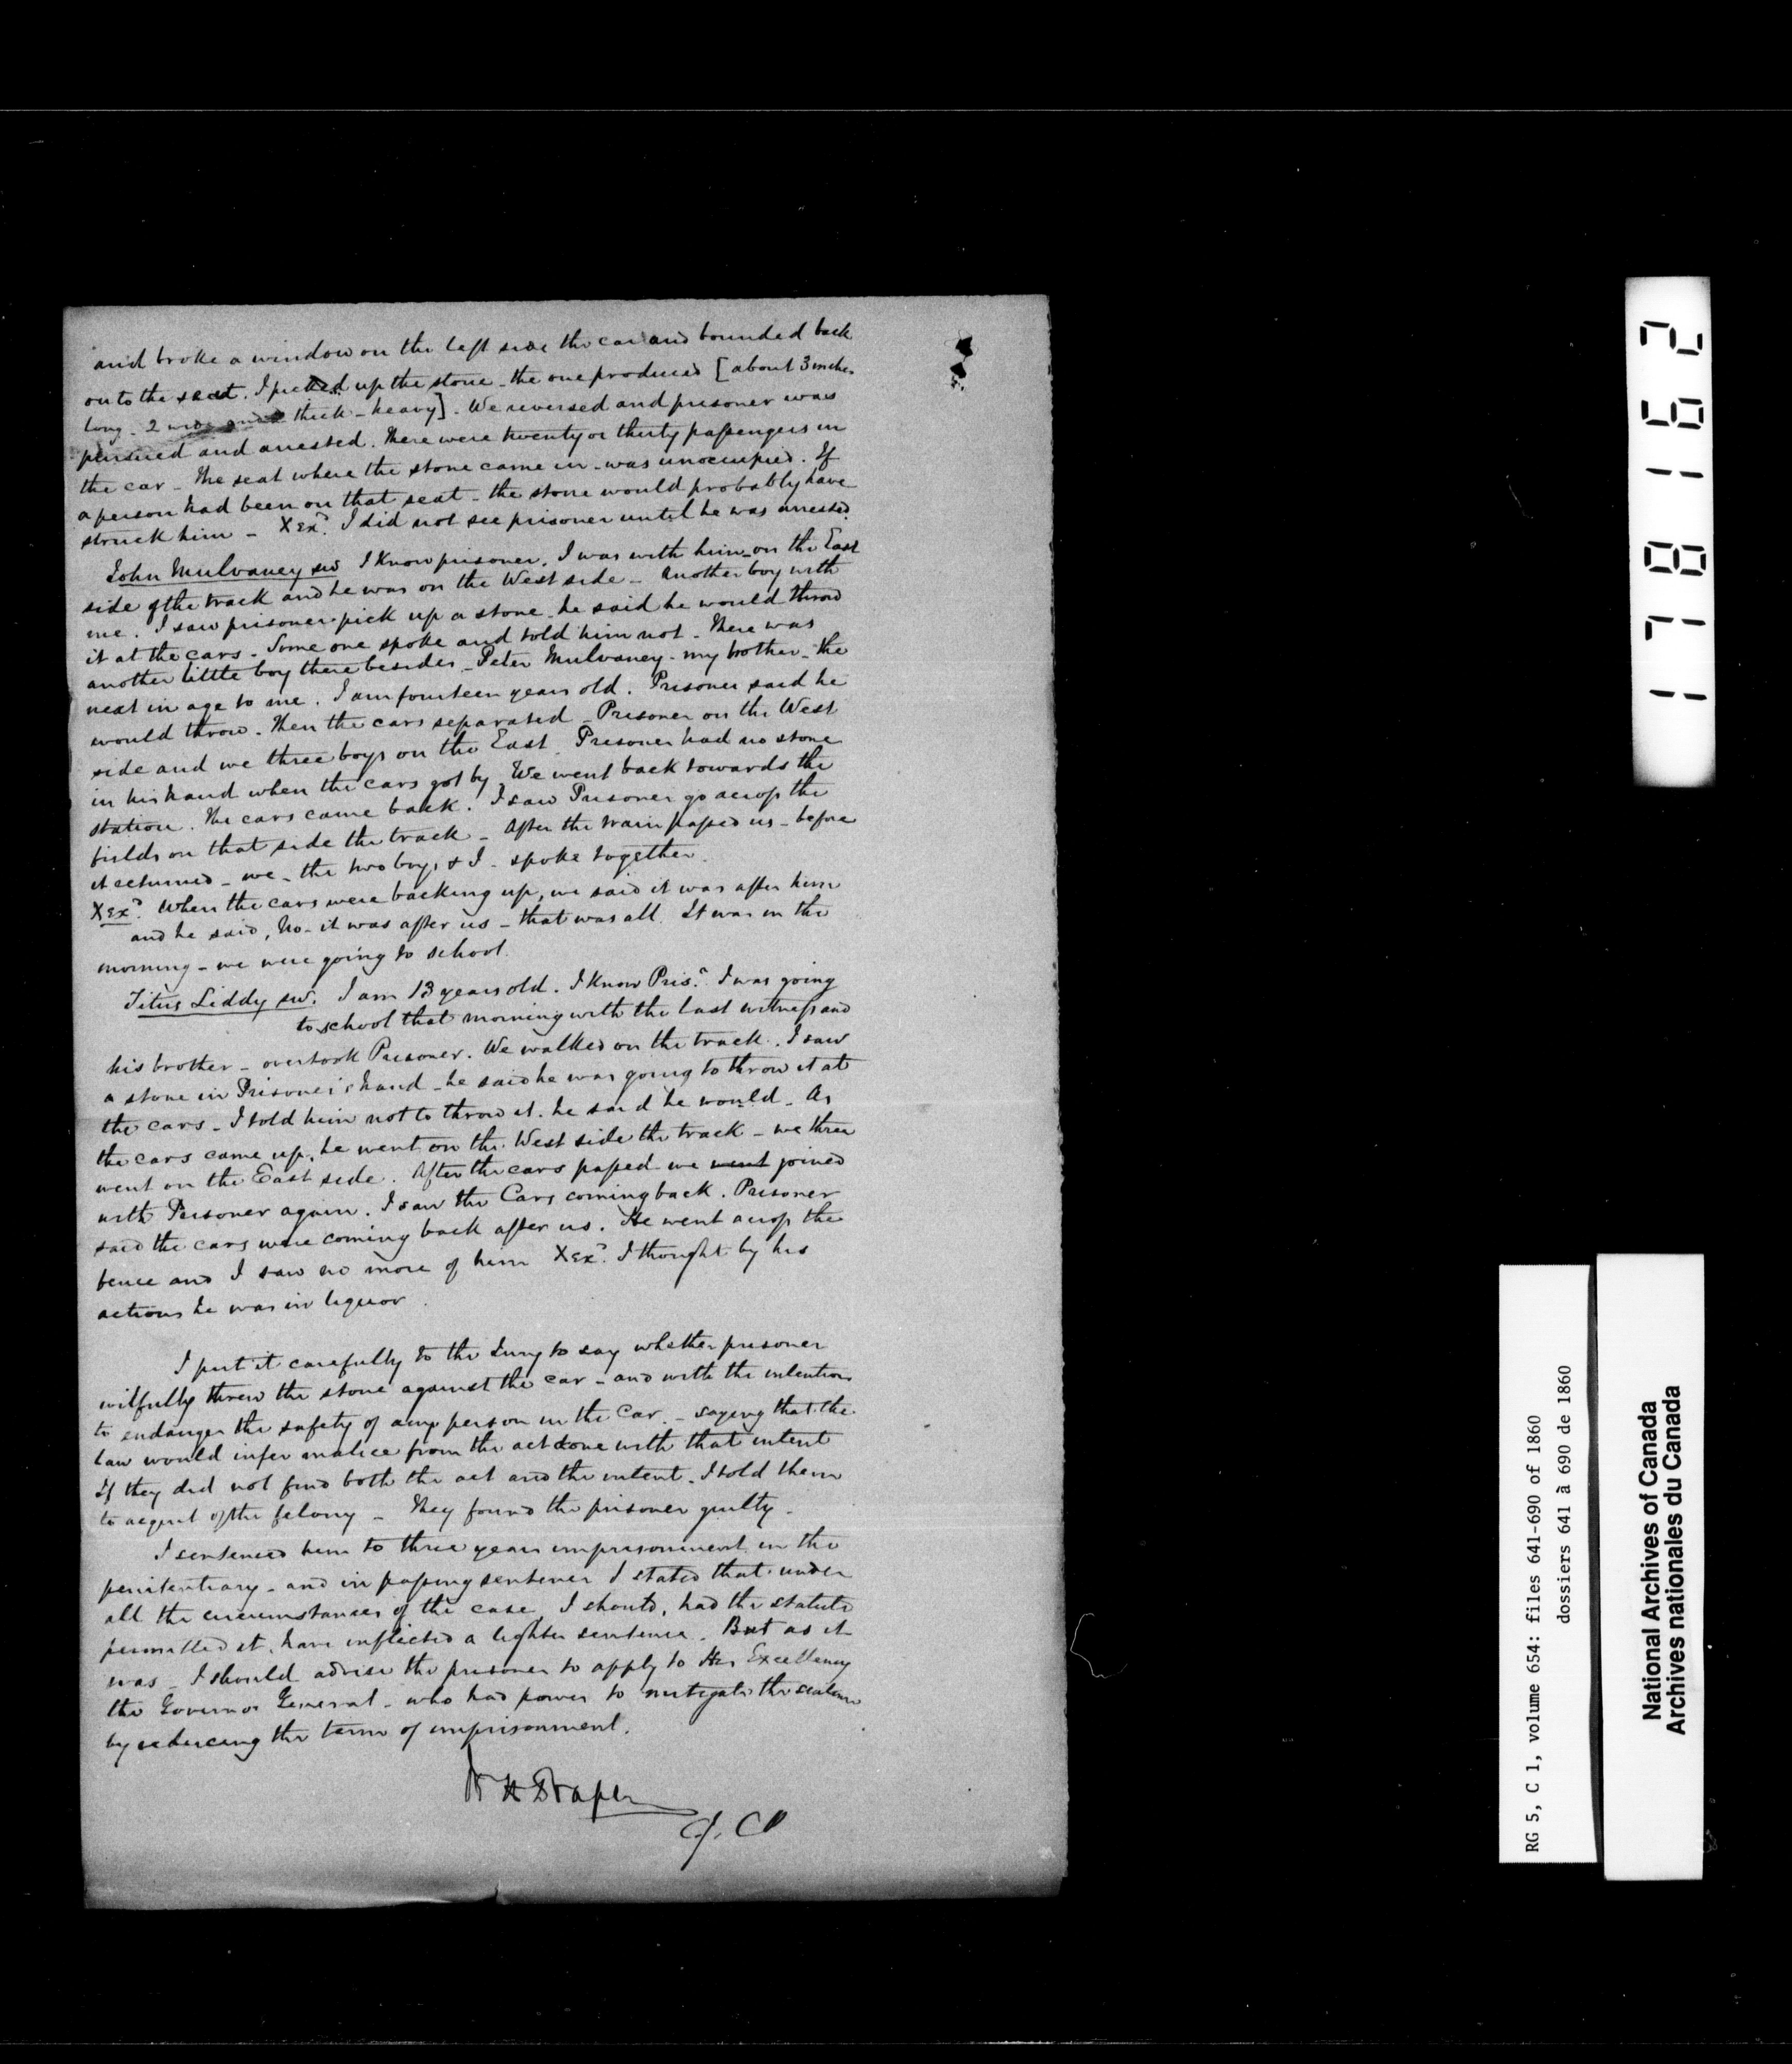 and broke a window on the left side the car and bounded back
on to the seat. I picked up the stone - the one produced [about 3 inches
long - 2 wide thick - heavy]. We reversed and prisoner was
pursued and arrested. There were twenty or thirty passengers in
the car - The seat where the stone came in - was unoccupied. If
a person had been on that seat - the stone would probably have
struck him - Xexd. I did not see prisoner until he was arrested.
John Mulvaney sw I know prisoner. I was with him - on the East
side of the track and he was on the West side - Another boy with
me. I saw prisoner pick up a stone - he said he would throw
it at the cars - Some one spoke and told him not - There was
another little boy there besides - Peter Mulvaney - my brother - the
next in age to me. I am fourteen years old. Prisoner said he
would throw. Then the cars separated - Prisoner on the West
side and we three boys on the East. Prisoner had no stone
in his hand when the cars got by. We went back towards the
station. The cars came back. I saw Prisoner go across the
fields on that side the track - After the train passed us - before
it returned - we - the two boys & I - spoke together.
Xexd. When the cars were backing up, we said it was after him
and he said, No - it was after us - that was all. It was in the
morning - we were going to school.
Titus Liddy sw. I am 13 years old. I know Prisr. I was going
to school that morning with the last witness and
his brother - overtook Prisoner. We walked on the track. I saw
a stone in Prisoner's hand - he said he was going to throw it at
the cars - I told him not to throw it. he said he would - As
the cars came up, he went on the West side the track - we three
went on the East side. After the cars passed we went joined
with Prisoner again. I saw the Cars coming back. Prisoner
said the cars were coming back after us. He went across the
fence and I saw no more of him Xexd. I thought by his
actions he was in liquor.
I put it carefully to the Jury to say whether prisoner
wilfully threw the stone against the car - and with the intention
to endanger the safety of any person in the Car. - saying that the
law would infer malice from the act done with that intent
If they did not find both the act and the intent - I told them
to acquit of the felony - They found the prisoner guilty -
I sentenced him to three years imprisonment in the
penitentiary - and in passing sentence I stated that under
all the circumstances of the case, I should, had the statute
permitted it, have inflicted a lighter sentence. But as it
was - I should advise the prisoner to apply to His Excellency
the Governor General - who had power to mitigate the sentence
by reducing the term of imprisonment.
Wm H Draper
CJ. CP
178162
RG 5, C 1, volume 654: files 641-690 of 1860
dossiers 641 à 690 de 1860
National Archives of Canada
Archives nationales du Canada